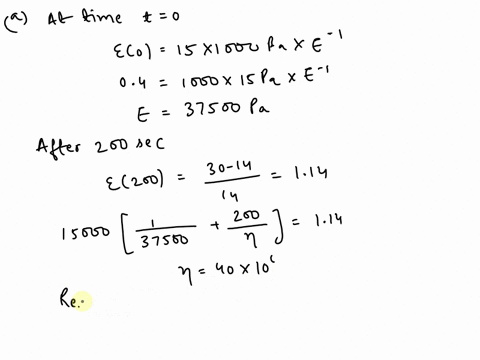 (a) At time t=0
ε(0) = 15 × 1000 Pa × E⁻¹
0.4 = 1000 × 15 Pa × E⁻¹
E = 37500 Pa
After 200 sec
ε(200) = \frac{30-14}{14} = 1.14
15000 [ \frac{1}{37500} + \frac{200}{η} ] = 1.14
η = 40 × 10⁶
Re.